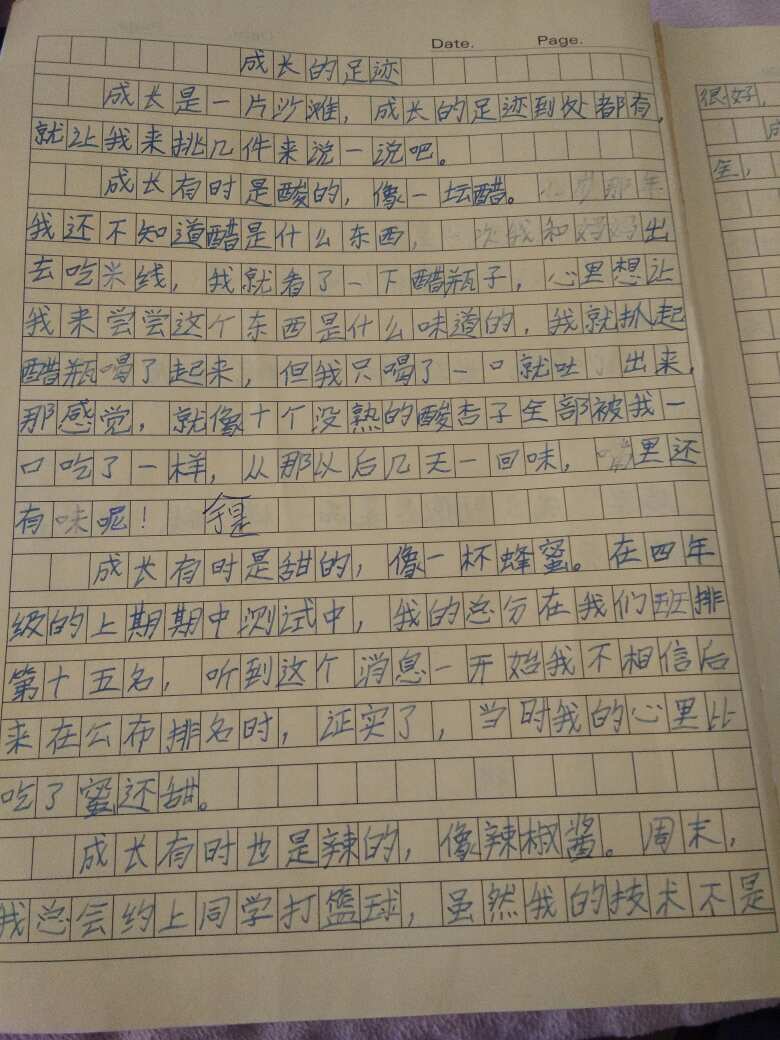 Date. Page.
成长的足迹
成长是一片沙滩，成长的足迹到处都有，
就让我来挑几件来说一说吧。
成长有时是酸的，像一坛醋。岁那年
我还不知道醋是什么东西，一次我和妈妈出
去吃米线，我就看了一下醋瓶子，心里想让
我来尝尝这个东西是什么味道的，我就抓起
醋瓶喝了起来，但我只喝了一口就吐了出来，
那感觉，就像十个没熟的酸杏子全部被我一
口吃了一样，从那以后几天一回味，嘴里还
有味呢！
成长有时是甜的，像一杯蜂蜜。在四年
级的上期期中测试中，我的总分在我们班排
第十五名，听到这个消息一开始我不相信后
来在公布排名时，证实了，当时我的心里比
吃了蜜还甜。
成长有时也是辣的，像辣椒酱。周末，
我总会约上同学打篮球，虽然我的技术不是
很好，
成
全，